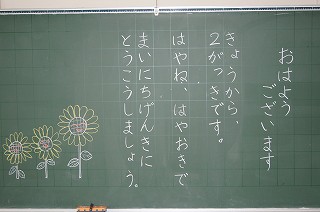 おはよう
ございます
きょうから、
2がっきです。
はやね、はやおきで
まいにちげんきに
とうこうしましょう。